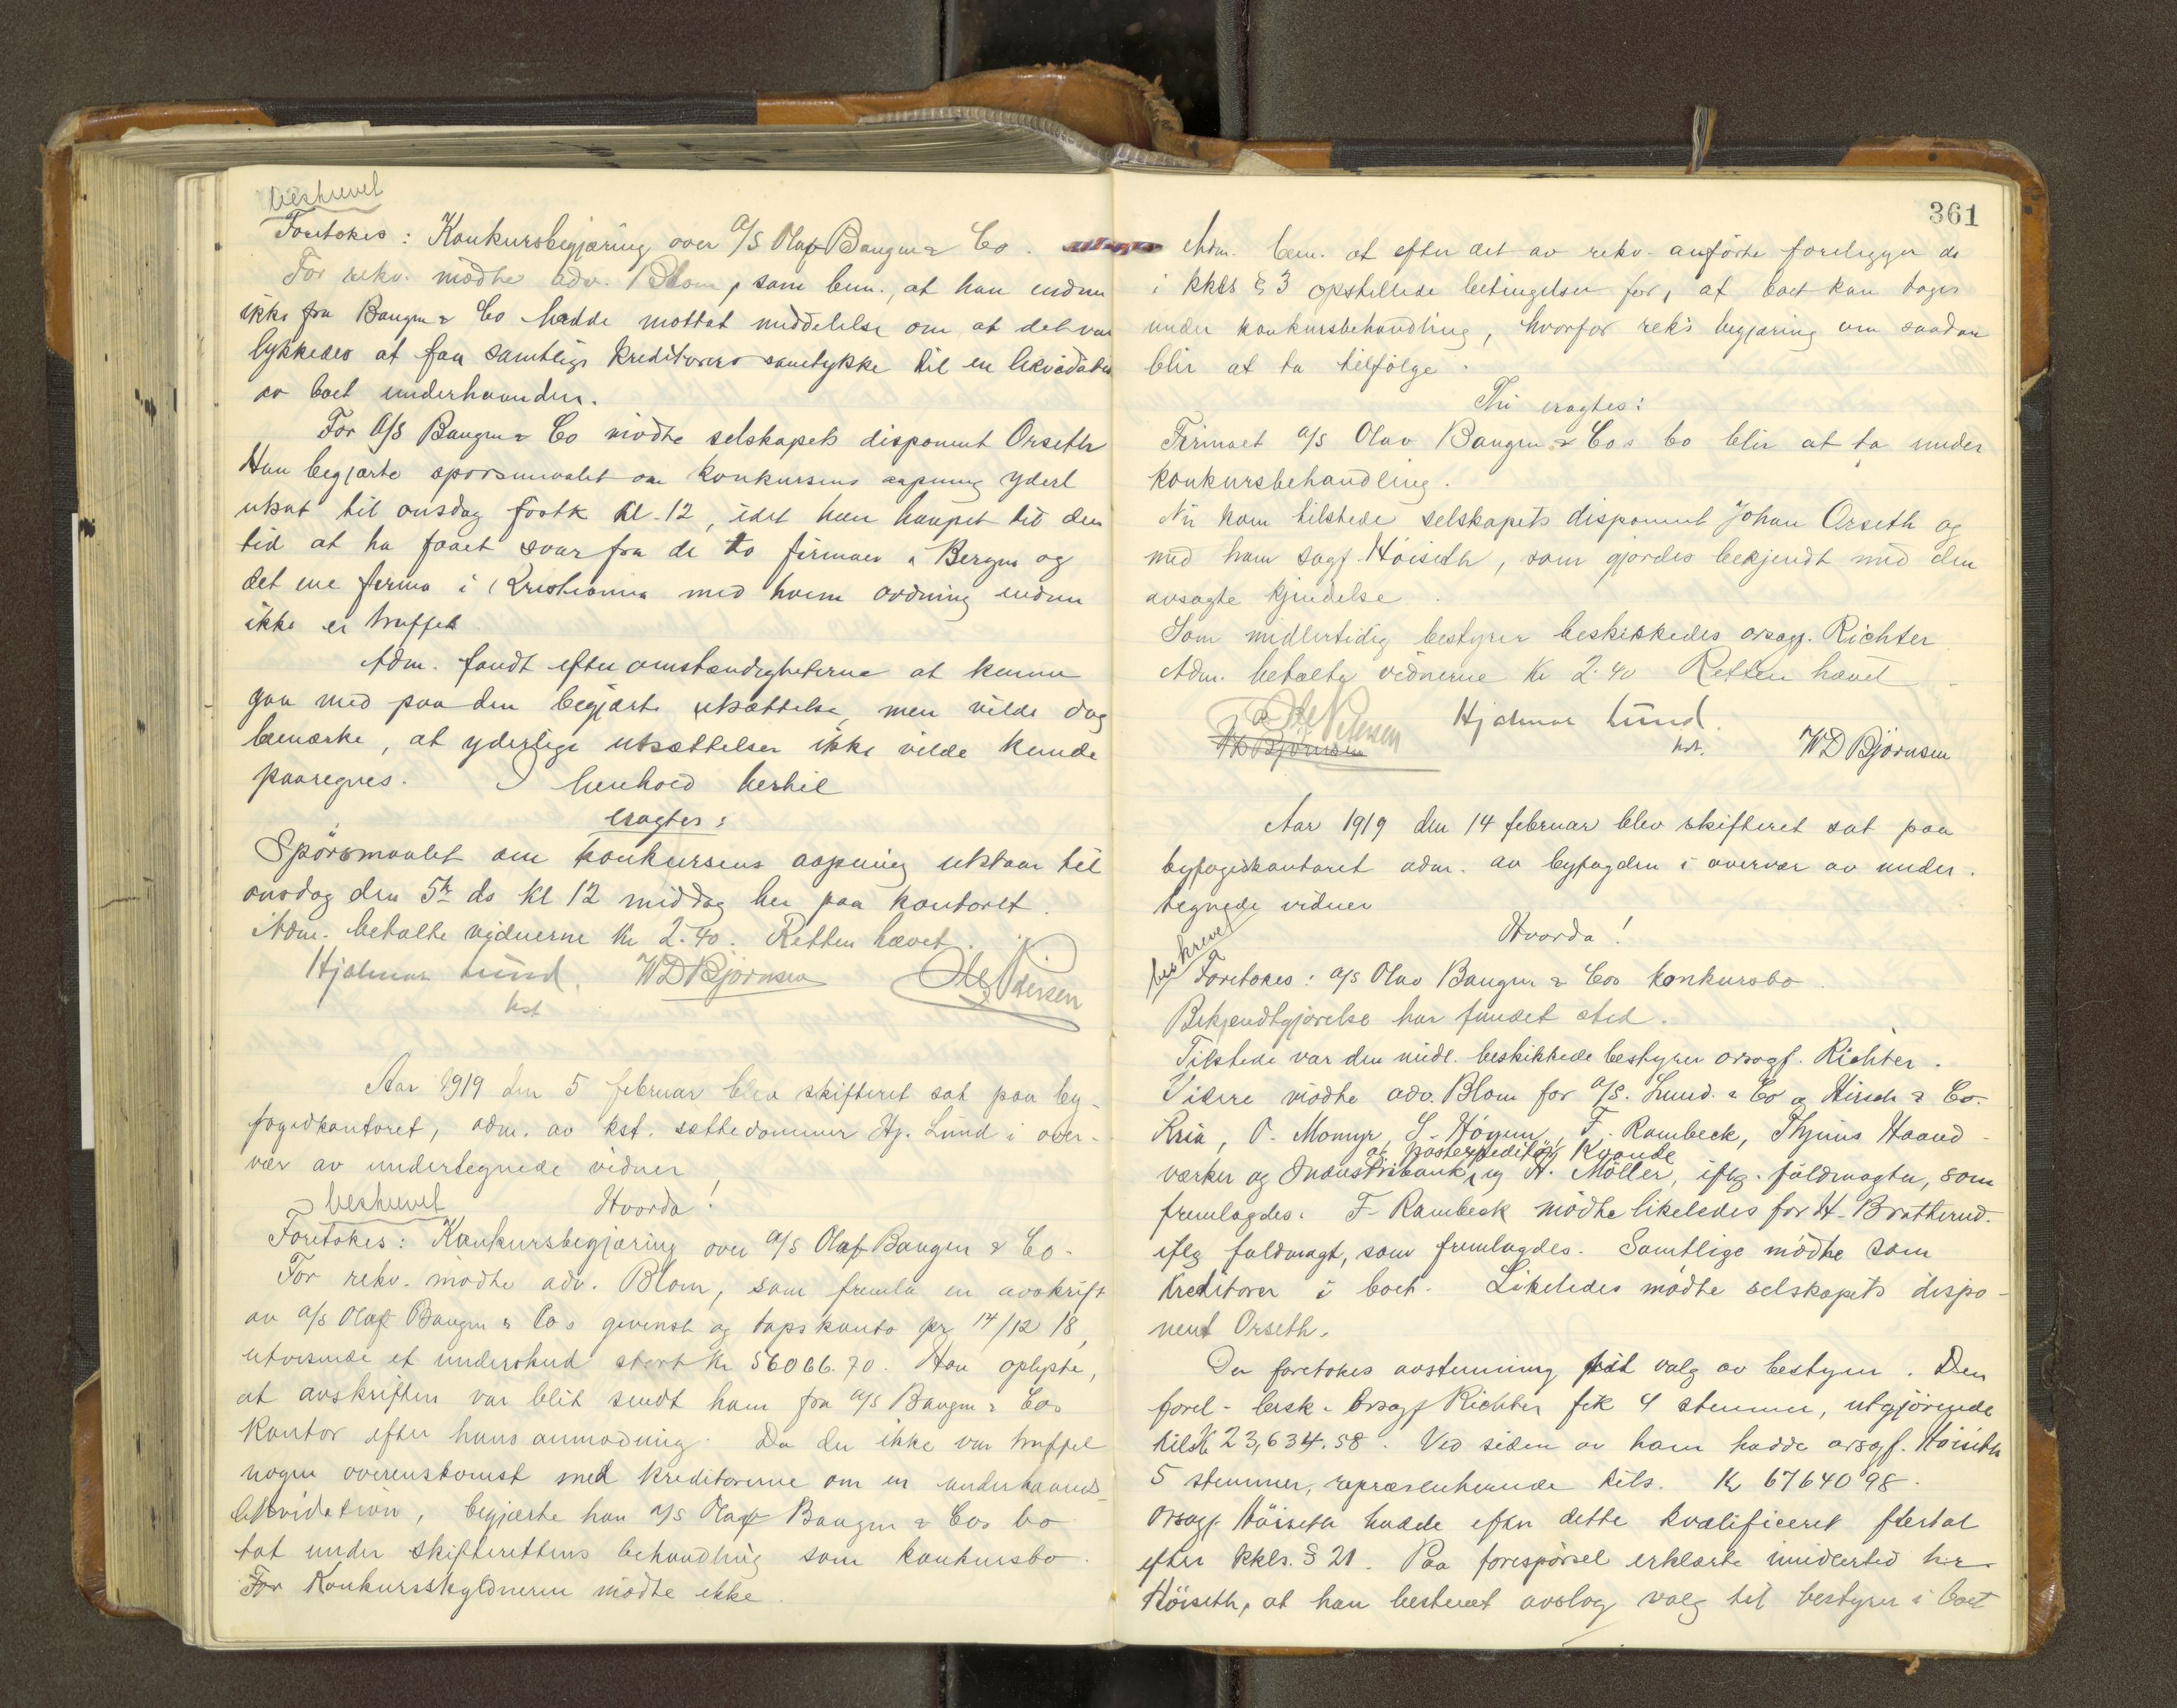 beskrevet
Foretokes: Konkursbegjæring over A/S Olaf Baugen & Co.
For rekv. mødte adv. Blom, som bem., at han endnu
ikke fra Baugen & Co hadde mottat meddelelse om at det var
lykkedes at faa samtlige kreditorers samtykke til en likvidation
av boet underhaanden.
For A/S Baugen & Co mødte selskapets disponent Orseth
Han begjærte spørsmaalet om konkursens aapning yderl
utsat til onsdag førstk kl. 12, idet han haapet til den
tid at ha faaet svar fra de to firmaer i Bergen og
det ene firma i Kristiania med hvem ordning endnu
ikke er truffet
Adm. fandt efter omstændigheterne at kunne
gaa med paa den begjærte utsættelse, men vilde dog
bemærke, at yderlige utsættelser ikke vilde kunde
paaregnes. I henhold hertil
eragtes:
Spörsmaalet om konkursens aapning utstaar til
onsdag den 5te ds kl 12 middag her paa kontoret.
Adm. betalte vidnerne kr 2.40. Retten hævet.
Hjalmar Lund. WD Bjørnsen Ole Pedersen
kst
Aar 1919 den 5 februar blev skifteret sat paa by-
fogedkontoret, adm. av kst. sættedommer Hj. Lund i over-
vær av undertegnede vidner
beskrevet Hvorda!
Foretokes: Konkursbegjæring over A/S Olaf Baugen & Co.
For rekv. mødte adv. Blom, som fremla en avskrift
av A/S Olaf Baugen & Cos gevinst og taps konto pr 14/12 18,
utvisende et underskud stort kr 56066.70. Han oplyste,
at avskriften var blit sendt ham fra A/S Baugen & Cos
kontor efter hans anmodning. Da der ikke var truffet
nogen overenskomst med kreditorerne om en underhaands-
likvidation, begjærte han A/S Olaf Baugen & Cos bo
tat under skifterettens behandling som konkursbo.
For Konkursskyldneren mødte ikke.
361
Adm. bem. at efter det av rekv. anførte foreligger de
i kkls § 3 opstillede betingelser for, at boet kan tages
under konkursbehandling, hvorfor rek's begjæring om saadan
blir at ta tilfølge.
Thi eragtes:
Firmaet A/S Olav Baugen & Cos bo blir at ta under
konkursbehandling.
Nu kom tilstede selskapets disponent Johan Orseth og
med ham sagf. Höiseth, som gjordes bekjendt med den
avsagte kjendelse.
Som midlertidig bestyrer beskikkedes orsagf. Richter
Adm. betalte vidnerne kr 2.40 Retten hævet.
Ole Pedersen Hjalmar Lund. kst. WD Bjørnsen
WD Bjørnsen
Aar 1919 den 14 februar blev skifteret sat paa
byfogedkontoret adm. av byfogden i overvær av under-
tegnede vidner
Hvorda!
beskrevet
Foretokes: A/S Olav Baugen & Cos konkursbo.
Bekjendtgjørelse har fundet sted.
Tilstede var den midl. beskikkede bestyrer orsagf. Richter.
Videre mødte adv. Blom for A/S. Lund. & Co og Hirsch & Co.
Kria, O. Momyr, S. Höyem, F. Rambeck, Thjems Haand-
at postexpeditör Kvande
verker og Industribank, og A. Möller, iflg. fuldmagter, som
fremlagdes. F. Rambeck mödte likeledes for H. Bratterud.
iflg fuldmagt, som fremlagdes. Samtlige mødte som
kreditorer i boet. Likeledes mødte selskapets dispo-
nent Orseth.
Der foretokes avstemning til valg av bestyrer. Den
forel. besk. Orsagf Richter fik 4 stemmer, utgjörende
tils kr 23,634.58. Ved siden av ham hadde orsagf. Höiseth
5 stemmer, repræsenterende tils. kr 67640 98.
Orsagf. Höiseth hadde efter dette kvalificeret flertal
efter kkls. § 21. Paa forespørsel erklærte imidlertid hr.
Höiseth, at han bestemt avslog valg til bestyrer i boet